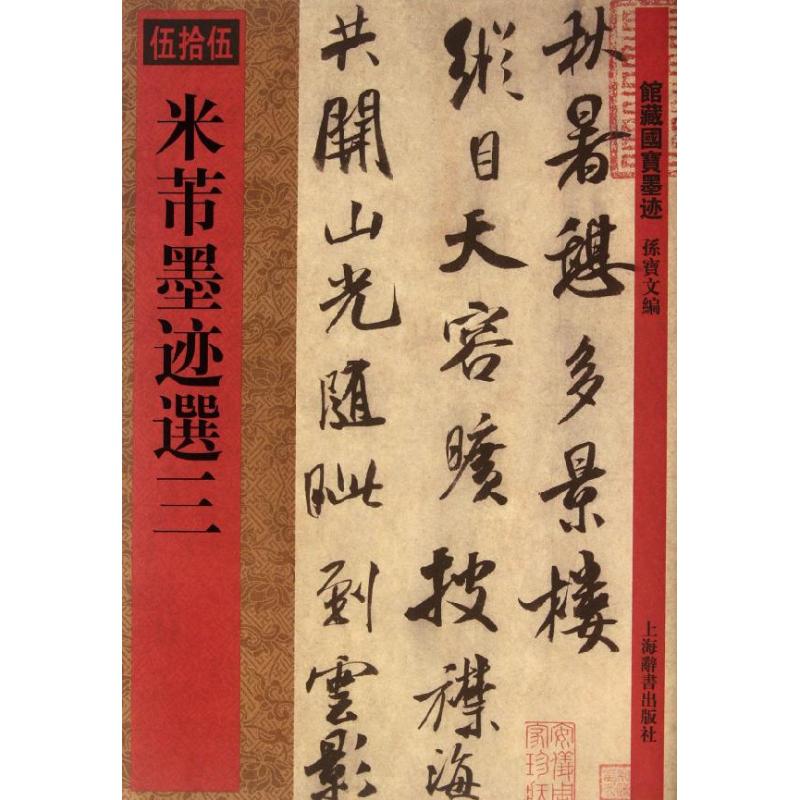 館藏國寶墨迹
孫寶文編
上海辭書出版社
秋暑憩多景樓
縱目天容曠披襟海
共開山光隨眦到雲影
伍拾伍
米芾墨迹選三